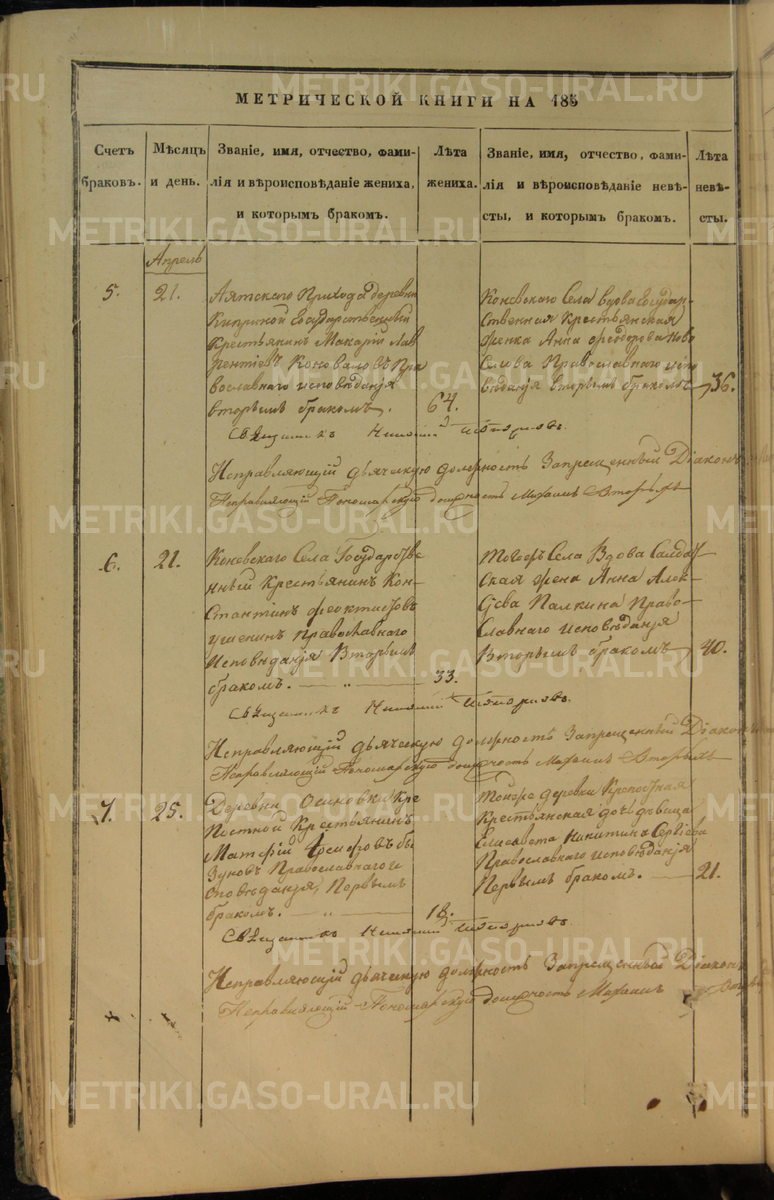 МЕТРИЧЕСКОЙ КНИГИ НА 185
Счетъ браковъ.
Мѣсяцъ и день.
Званіе, имя, отчество, фами-
лія и вѣроисповѣданіе жениха,
и которымъ бракомъ.
Лѣта жениха.
Званіе, имя, отчество, фами-
лія и вѣроисповѣданіе невѣ-
сты, и которымъ бракомъ.
Лѣта невѣ-
сты.
Апрель
5.
21.
Аятскаго Прихода деревни
Киприной Государственный
Крестьянинъ Макарій Лав
рентіевъ Коноваловъ Пра
вославнаго исповѣданія
вторымъ бракомъ.
64.
Коневскаго Села вдова Государ-
ственная Крестьянская
женка Анна Феодорова Ново
Селова Православнаго испо
вѣданія вторымъ бракомъ
36.
Священникъ
Исправляющій дьяческую должность Запрещенный Діаконъ
Исправляющій Пономарскую должность Михаилъ
6.
21.
Коневскаго Села Государстве
нный Крестьянинъ Кон-
стантинъ Феоктистовъ
Ушенинъ Православнаго
Исповѣданія Вторымъ
бракомъ.
33.
Тогожъ Села Вдова Салдат
ская жена Анна Алек-
сѣева Палкина Право-
Славнаго исповѣданія
Вторымъ бракомъ
40.
Священникъ
Исправляющій дьяческую должность Запрещенный Діаконъ
Исправляющій Пономарскую должность Михаилъ
7.
25.
Деревни Осиновки Кре
постной Крестьянинъ
Матфій
Православнаго и
споведанія, Первымъ
бракомъ.
18.
Тойже деревни Крепостная
Крестьянская дочь девица
Елисавета Никитина Сергіева
Православнаго исповѣданія
Первымъ бракомъ.
21.
Священникъ
Исправляющій дьяческую должность Запрещенный Діаконъ
Исправляющій Пономарскую должность Михаилъ
METRIKI.GASO-URAL.RU